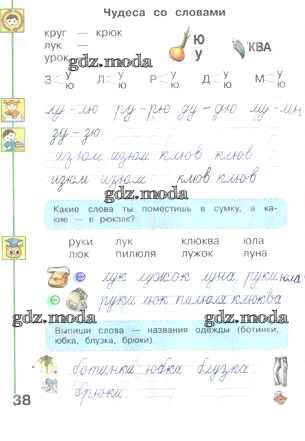 Чудеса со словами
круг — крюк
лук —
урок
gdz.moda
Ю
У
КВА
gdz.moda
З У Ю Л У Ю Р У Ю Д У Ю М У Ю
лу - лю ру - рю ду - дю му - мю
зу - зю
изюм изюм клюв клюв
изюм изюм клюв клюв
gdz.moda
Какие слова ты поместишь в сумку, а ка-
кие — в рюкзак?
руки лук клюква юла
люк пилюля лужок луна
gdz.moda
лук лужок луна руки юла
руки люк пилюля клюква
gdz.moda gdz.moda
Выпиши слова — названия одежды (ботинки,
юбка, блузка, брюки).
ботинки юбка блузка
брюки
38
gdz.moda